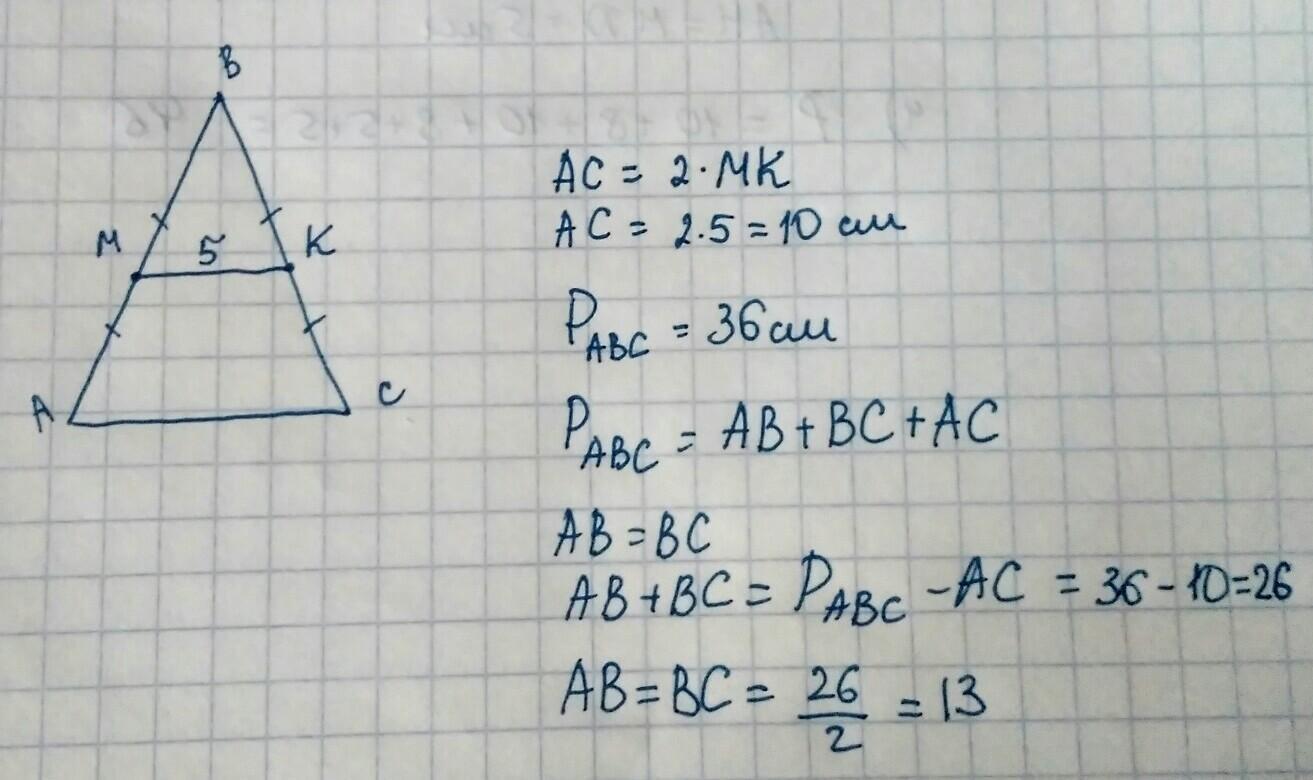 B
M 5 K
A C
AC = 2·MK
AC = 2·5 = 10 см
P_ABC = 36 см
P_ABC = AB + BC + AC
AB = BC
AB + BC = P_ABC - AC = 36 - 10 = 26
AB = BC = 26/2 = 13